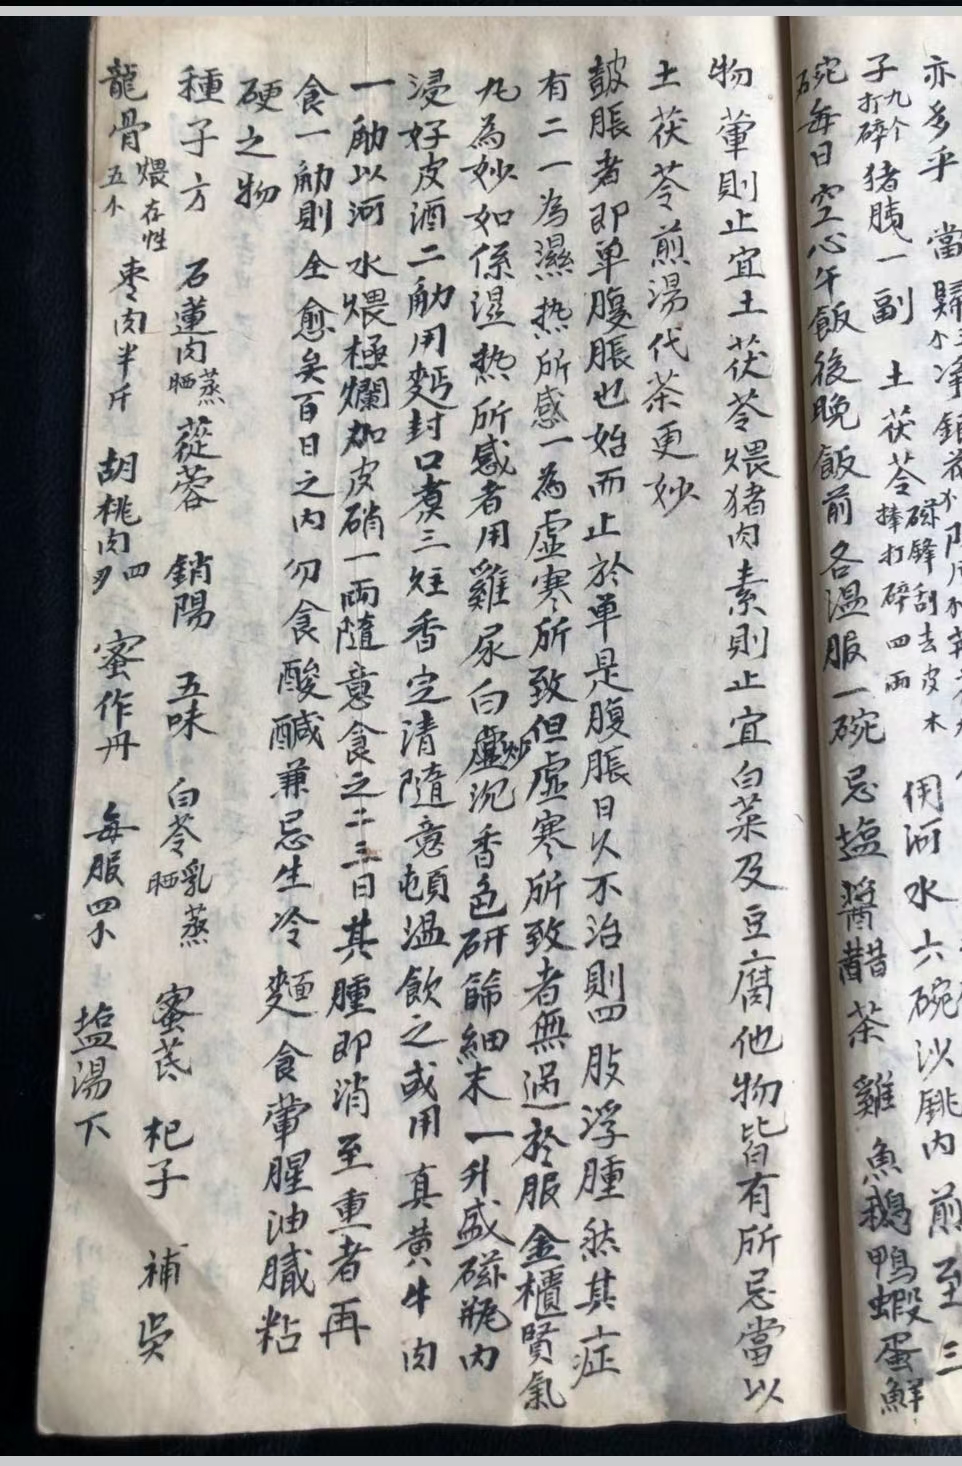 亦多乎 當歸 淨銀花
子九个打碎 猪胰一副 土茯苓 磁鋒刮去皮木捧打碎四兩 用河水六碗沙銚内煎至三
碗每日空心午飯後晚飯前各溫服一碗忌塩醬醋茶雞魚鵝鴨蝦蛋鮮
物葷則止宜土茯苓煨猪肉素則止宜白菜及豆腐他物皆有所忌當以
土茯苓煎湯代茶更妙
皷脹者即单腹脹也始而止於单是腹脹日久不治則四肢浮腫然其症
有二一為濕热所感一為虛寒所致但虛寒所致者無過於服金櫃賢氣
九為妙如係湿热所感者用雞尿白炒沉香色研篩細末一升盛磁瓶内
浸好皮酒二觔用麪封口煑三炷香定清隨意頓溫飲之或用真黄牛肉
一觔以河水煨極爛加皮硝一兩隨意食之二三日其腫即消至重者再
食一觔則全愈矣百日之内勿食酸鹹兼忌生冷麵食葷腥油膩粘
硬之物
種子方 石蓮肉蒸晒 蓯蓉 銷陽 五味 白苓乳蒸晒 蜜芪 杞子 補
龍骨煨存性五小 枣肉半斤 胡桃肉四 蜜作丹 每服四小 塩湯下